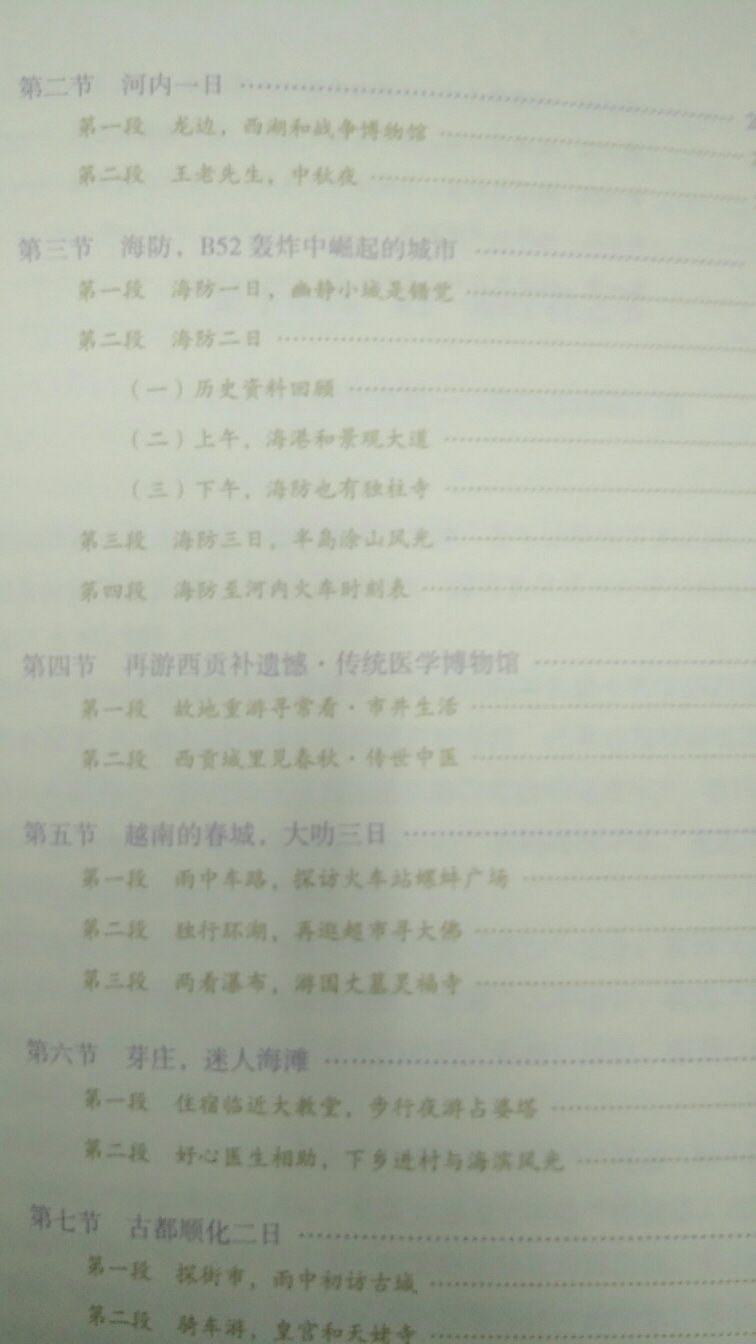 第二节 河内一日 ……………… 2
第一段 龙边，西湖和战争博物馆 ………………
第二段 王老先生，中秋夜 ………………
第三节 海防，B52轰炸中崛起的城市 ………………
第一段 海防一日，幽静小城是错觉 ………………
第二段 海防二日 ………………
（一）历史资料回顾 ………………
（二）上午，海港和景观大道 ………………
（三）下午，海防也有独柱寺 ………………
第三段 海防三日，半岛涂山风光 ………………
第四段 海防至河内火车时刻表 ………………
第四节 再游西贡补遗憾·传统医学博物馆 ………………
第一段 故地重游寻常看·市井生活 ………………
第二段 西贡城里见春秋·传世中医 ………………
第五节 越南的春城，大叻三日 ………………
第一段 雨中车路，探访火车站螺蚌广场 ………………
第二段 独行环湖，再逛超市寻大佛 ………………
第三段 两看瀑布，游国丈墓灵福寺 ………………
第六节 芽庄，迷人海滩 ………………
第一段 住宿临近大教堂，步行夜游占婆塔 ………………
第二段 好心医生相助，下乡进村与海滨风光 ………………
第七节 古都顺化二日 ………………
第一段 探街市，雨中初访古城 ………………
第二段 骑车游，皇宫和天姥寺 ………………